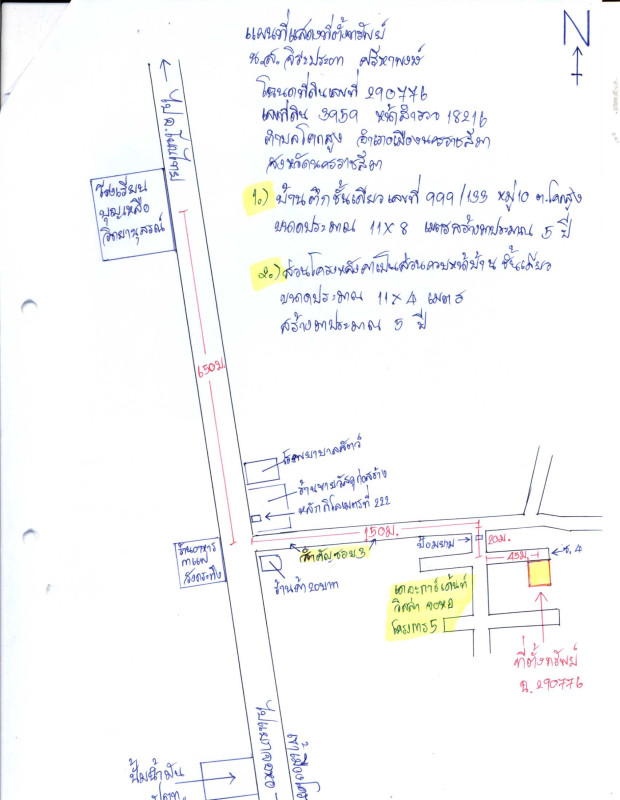 แผนที่แสดงที่ตั้งทรัพย์
น.ส. จิระประภา ศรีหาพงษ์
โฉนดที่ดินเลขที่ 290776
เลขที่ดิน 3959 หน้าสำรวจ 18216
ตำบลโคกสูง อำเภอเมืองนครราชสีมา
จังหวัดนครราชสีมา
1.) บ้านตึกชั้นเดียว เลขที่ 999/133 หมู่ 10 ต.โคกสูง
ขนาดประมาณ 11 x 8 เมตร สร้างมาประมาณ 5 ปี
2.) ส่วนโครงหลังคาเป็นส่วนควบหน้าบ้าน ชั้นเดียว
ขนาดประมาณ 11 x 4 เมตร
สร้างมาประมาณ 5 ปี
N
ไป อ.โนนไทย
โรงเรียน
บุญเหลือ
วิทยานุสรณ์
650 ม.
โรงพยาบาลสัตว์
ร้านขายวัสดุก่อสร้าง
หลักกิโลเมตรที่ 222
150 ม.
สำคัญซอย 3
ร้านอาหาร
กาแฟ
ร้านค้า 20 บาท
ป้อมยาม
20 ม.
45 ม.
ซ. 4
เดอะการ์เด้นท์
วิลล่า จอหอ
โครงการ 5
ที่ตั้งทรัพย์
ฉ. 290776
ไปแยกจอหอ
ปั้มน้ำมัน
ปตท.